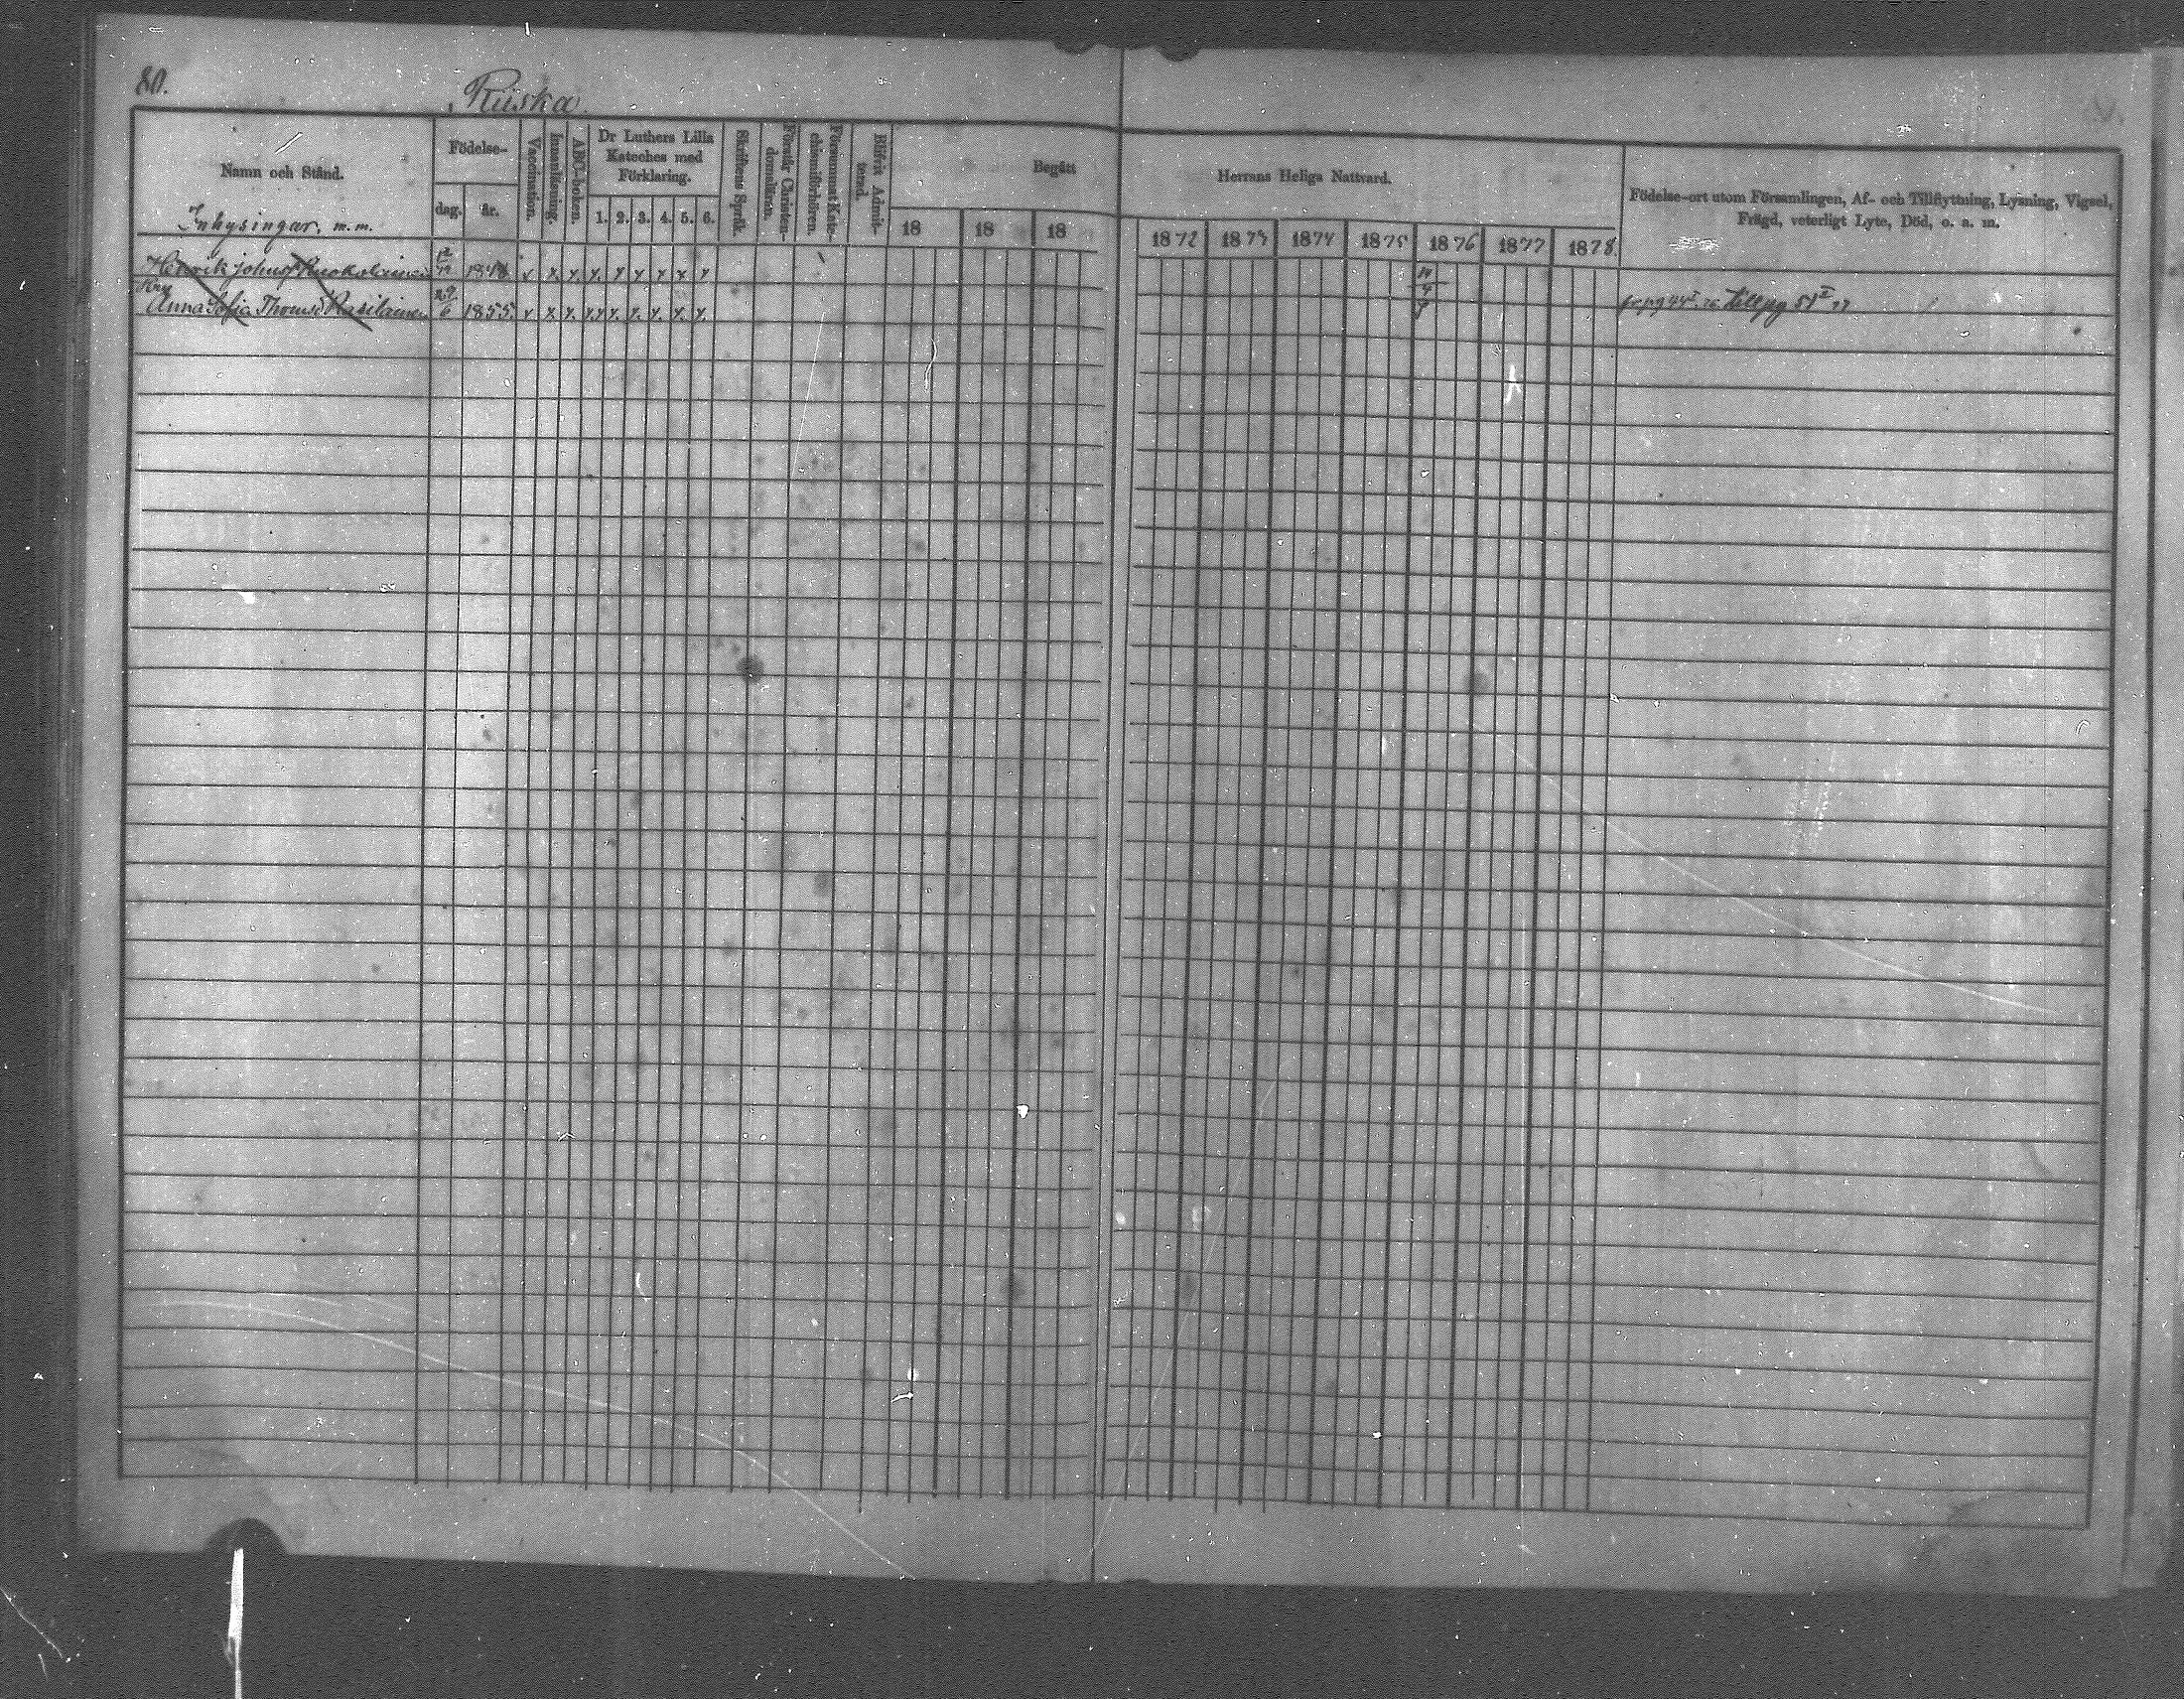 80.
Riiska.
Namn och Stånd.
Inhysingar, m. m.
Födelse-
dag.
år.
Vaccination.
Innanläsning.
ABC-boken.
Dr Luthers Lilla
Kateches med
Förklaring.
1. 2. 3. 4. 5. 6.
Skriftens Språk.
Förstår Christen-
domsläran.
Försummat Kate-
chismiförhören.
Blifvit Admit-
terad.
Begått
18 18 18
Herrans Heliga Nattvard.
1872 1873 1874 1875 1876 1877 1878.
Födelse-ort utom Församlingen, Af- och Tillflyttning, Lysning, Vigsel,
Frägd, veterligt Lyte, Död, o. a. m.
Henrik Johns x x. x. x. x x x x x
Anna Sofia Thomsd Rasilainen 29/6 1855. x x x. x x x. x. x. x. x.
till pg 51